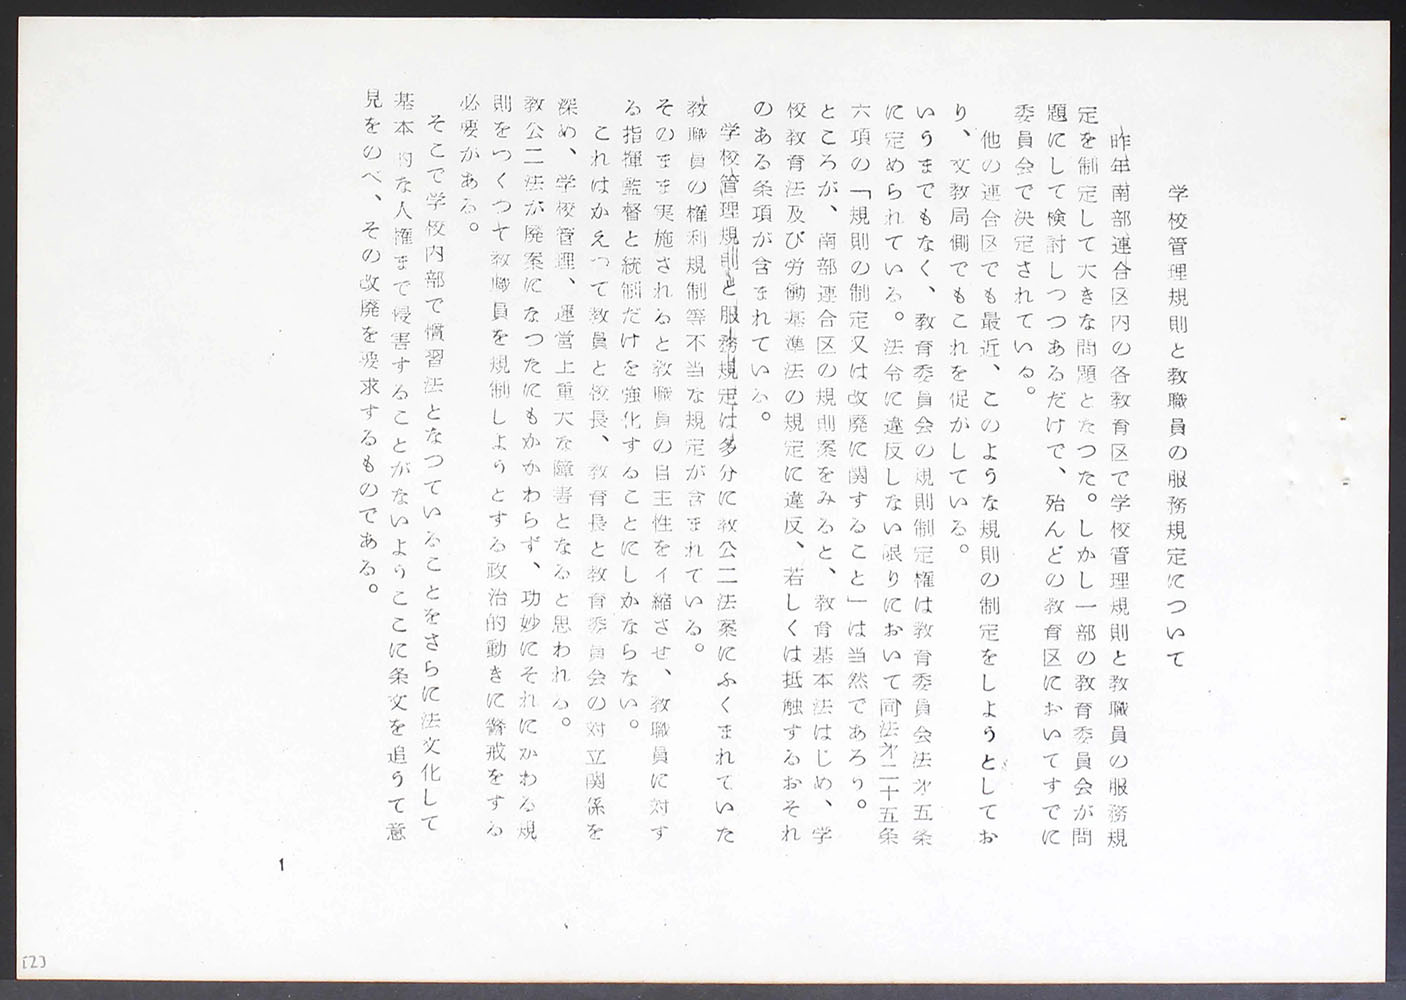 学校管理規則と教職員の服務規定について
昨年南部連合区内の各教育区で学校管理規則と教職員の服務規
定を制定して大きな問題となつた。しかし一部の教育委員会が問
題にして検討しつつあるだけで、殆んどの教育区においてすでに
委員会で決定されている。
他の連合区でも最近、このような規則の制定をしようとしてお
り、文教局側でもこれを促がしている。
いうまでもなく、教育委員会の規則制定権は教育委員会法才五条
に定められている。法令に違反しない限りにおいて同法才二十五条
六項の「規則の制定又は改廃に関すること」は当然であろう。
ところが、南部連合区の規則案をみると、教育基本法はじめ、学
校教育法及び労働基準法の規定に違反、若しくは抵触するおそれ
のある条項が含まれている。
学校管理規則と服務規定は多分に教公二法案にふくまれていた
教職員の権利規制等不当な規定が含まれている。
そのまま実施されると教職員の自主性をイ縮させ、教職員に対す
る指揮監督と統制だけを強化することにしかならない。
これはかえつて教員と校長、教育長と教育委員会の対立関係を
深め、学校管理、運営上重大な障害となると思われる。
教公二法が廃案になつたにもかかわらず、功妙にそれにかわる規
則をつくつて教職員を規制しようとする政治的動きに警戒をする
必要がある。
そこで学校内部で慣習法となつていることをさらに法文化して
基本的な人権まで侵害することがないようここに条文を追うて意
見をのべ、その改廃を要求するものである。
1
[2]